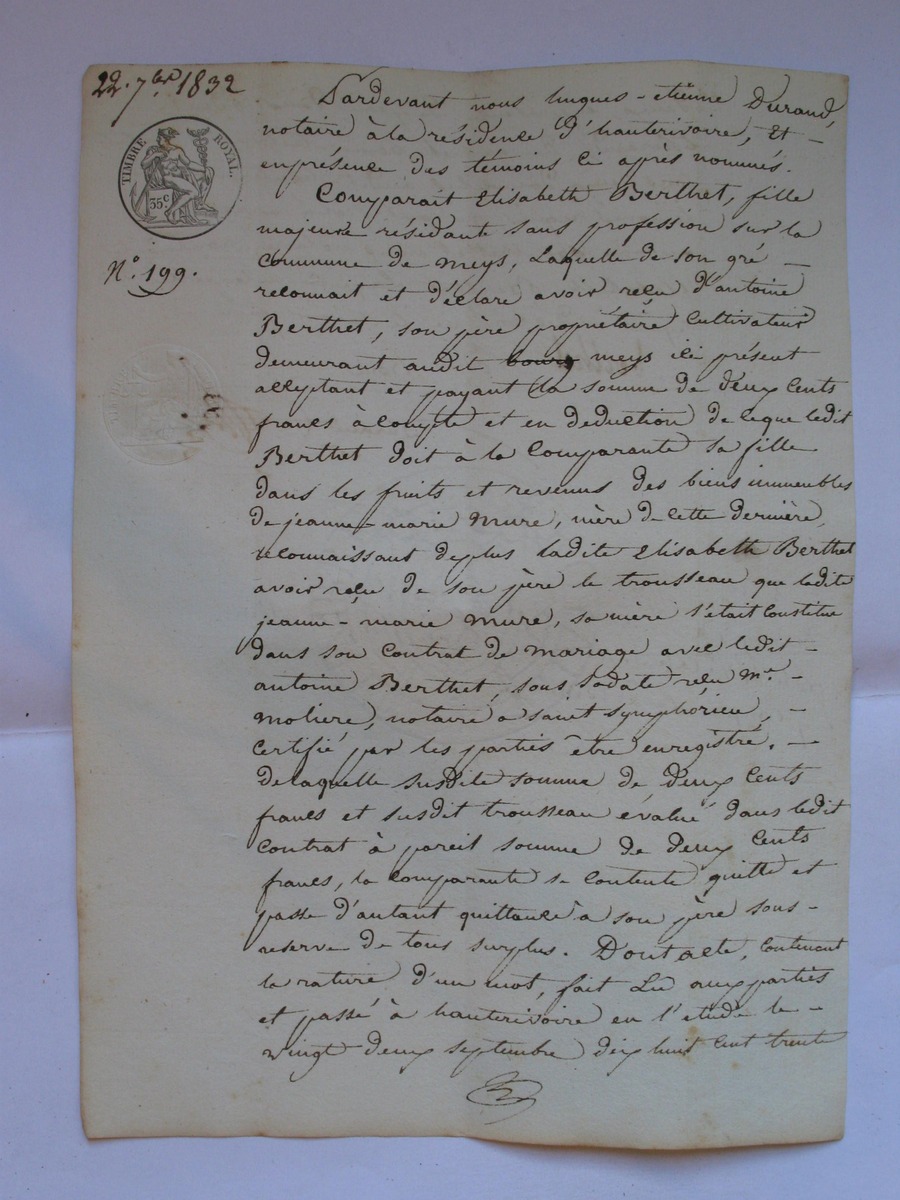 22. 7bre 1832
TIMBRE ROYAL.
35 c
N° 199.
Pardevant nous hugues-etienne Durand,
notaire à la résidence d'hauterivoire, Et –
en présence des témoins ci après nommés.
Comparait Elisabeth Berthet, fille
majeure résidante sans profession sur la
commune de meys, Laquelle de son gré –
reconnait et déclare avoir reçu d'antoine
Berthet, son père propriétaire cultivateur
demeurant audit bourg meys ici présent
acceptant et payant la somme de deux cents
francs à compte et en déduction de ce que ledit
Berthet doit à la comparante sa fille
dans les fruits et revenus des biens immeubles
de jeanne-marie Mure, mère de cette dernière,
reconnaissant de plus ladite Elisabeth Berthet
avoir reçu de son père le trousseau que ladite
jeanne-marie Mure, sa mère s'était constitué
dans son contrat de mariage avec ledit –
antoine Berthet, sous sa date reçu Me –
Moliere, notaire a saint symphorien, –
certifié par les parties être enregistré. –
de laquelle susdite somme de deux cents
francs et susdit trousseau évalué dans ledit
contrat à pareil somme de deux cents
francs, la comparante se contente quitte et
passe d'autant quittance à son père sous-
reserve de tous surplus. Dont acte, contenant
la rature d'un mot, fait Lu aux parties
et passé à hauterivoire en l'etude le –
vingt deux septembre dix huit cent trente